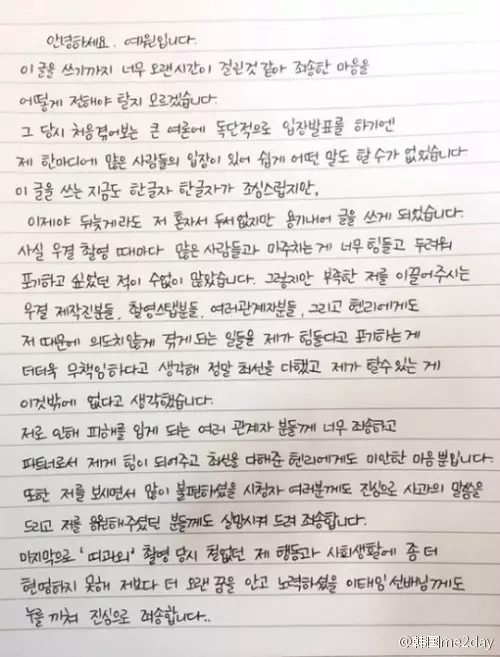 안녕하세요. 예원입니다.
이 글을 쓰기까지 너무 오랜시간이 걸린것 같아 죄송한 마음을
어떻게 전해야 할지 모르겠습니다.
그 당시 처음겪어보는 큰 여론에 독단적으로 입장발표를 하기엔
제 한마디에 많은 사람들의 입장이 있어 쉽게 어떤 말도 할 수가 없었습니다.
이 글을 쓰는 지금도 한글자 한글자가 조심스럽지만,
이제야 뒤늦게라도 저 혼자서 두서없지만 용기내어 글을 쓰게 되었습니다.
사실 우결 촬영 때마다 많은 사람들과 마주치는 게 너무 힘들고 두려워
포기하고 싶었던 적이 수없이 많았습니다. 그렇지만 부족한 저를 이끌어주시는
우결 제작진분들, 촬영스탭분들, 여러관계자분들, 그리고 헨리에게도
저 때문에 의도치않게 겪게 되는 일들을 제가 힘들다고 포기하는 게
더더욱 무책임하다고 생각해 정말 최선을 다했고 제가 할수있는 게
이것밖에 없다고 생각했습니다.
저로 인해 피해를 입게 되는 여러 관계자 분들께 너무 죄송하고
파트너로서 제게 힘이 되어주고 최선을 다해준 헨리에게도 미안한 마음뿐입니다.
또한 저를 보시면서 많이 불편하셨을 시청자 여러분께도 진심으로 사과의 말씀을
드리고 저를 응원해주셨던 분들께도 실망시켜 드려 죄송합니다.
마지막으로 '띠과외' 촬영 당시 철없던 제 행동과 사회생활에 좀 더
현명하지 못해 저보다 더 오랜 꿈을 안고 노력하셨을 이태임 선배님께도
누를 끼쳐 진심으로 죄송합니다..
@韩国me2day